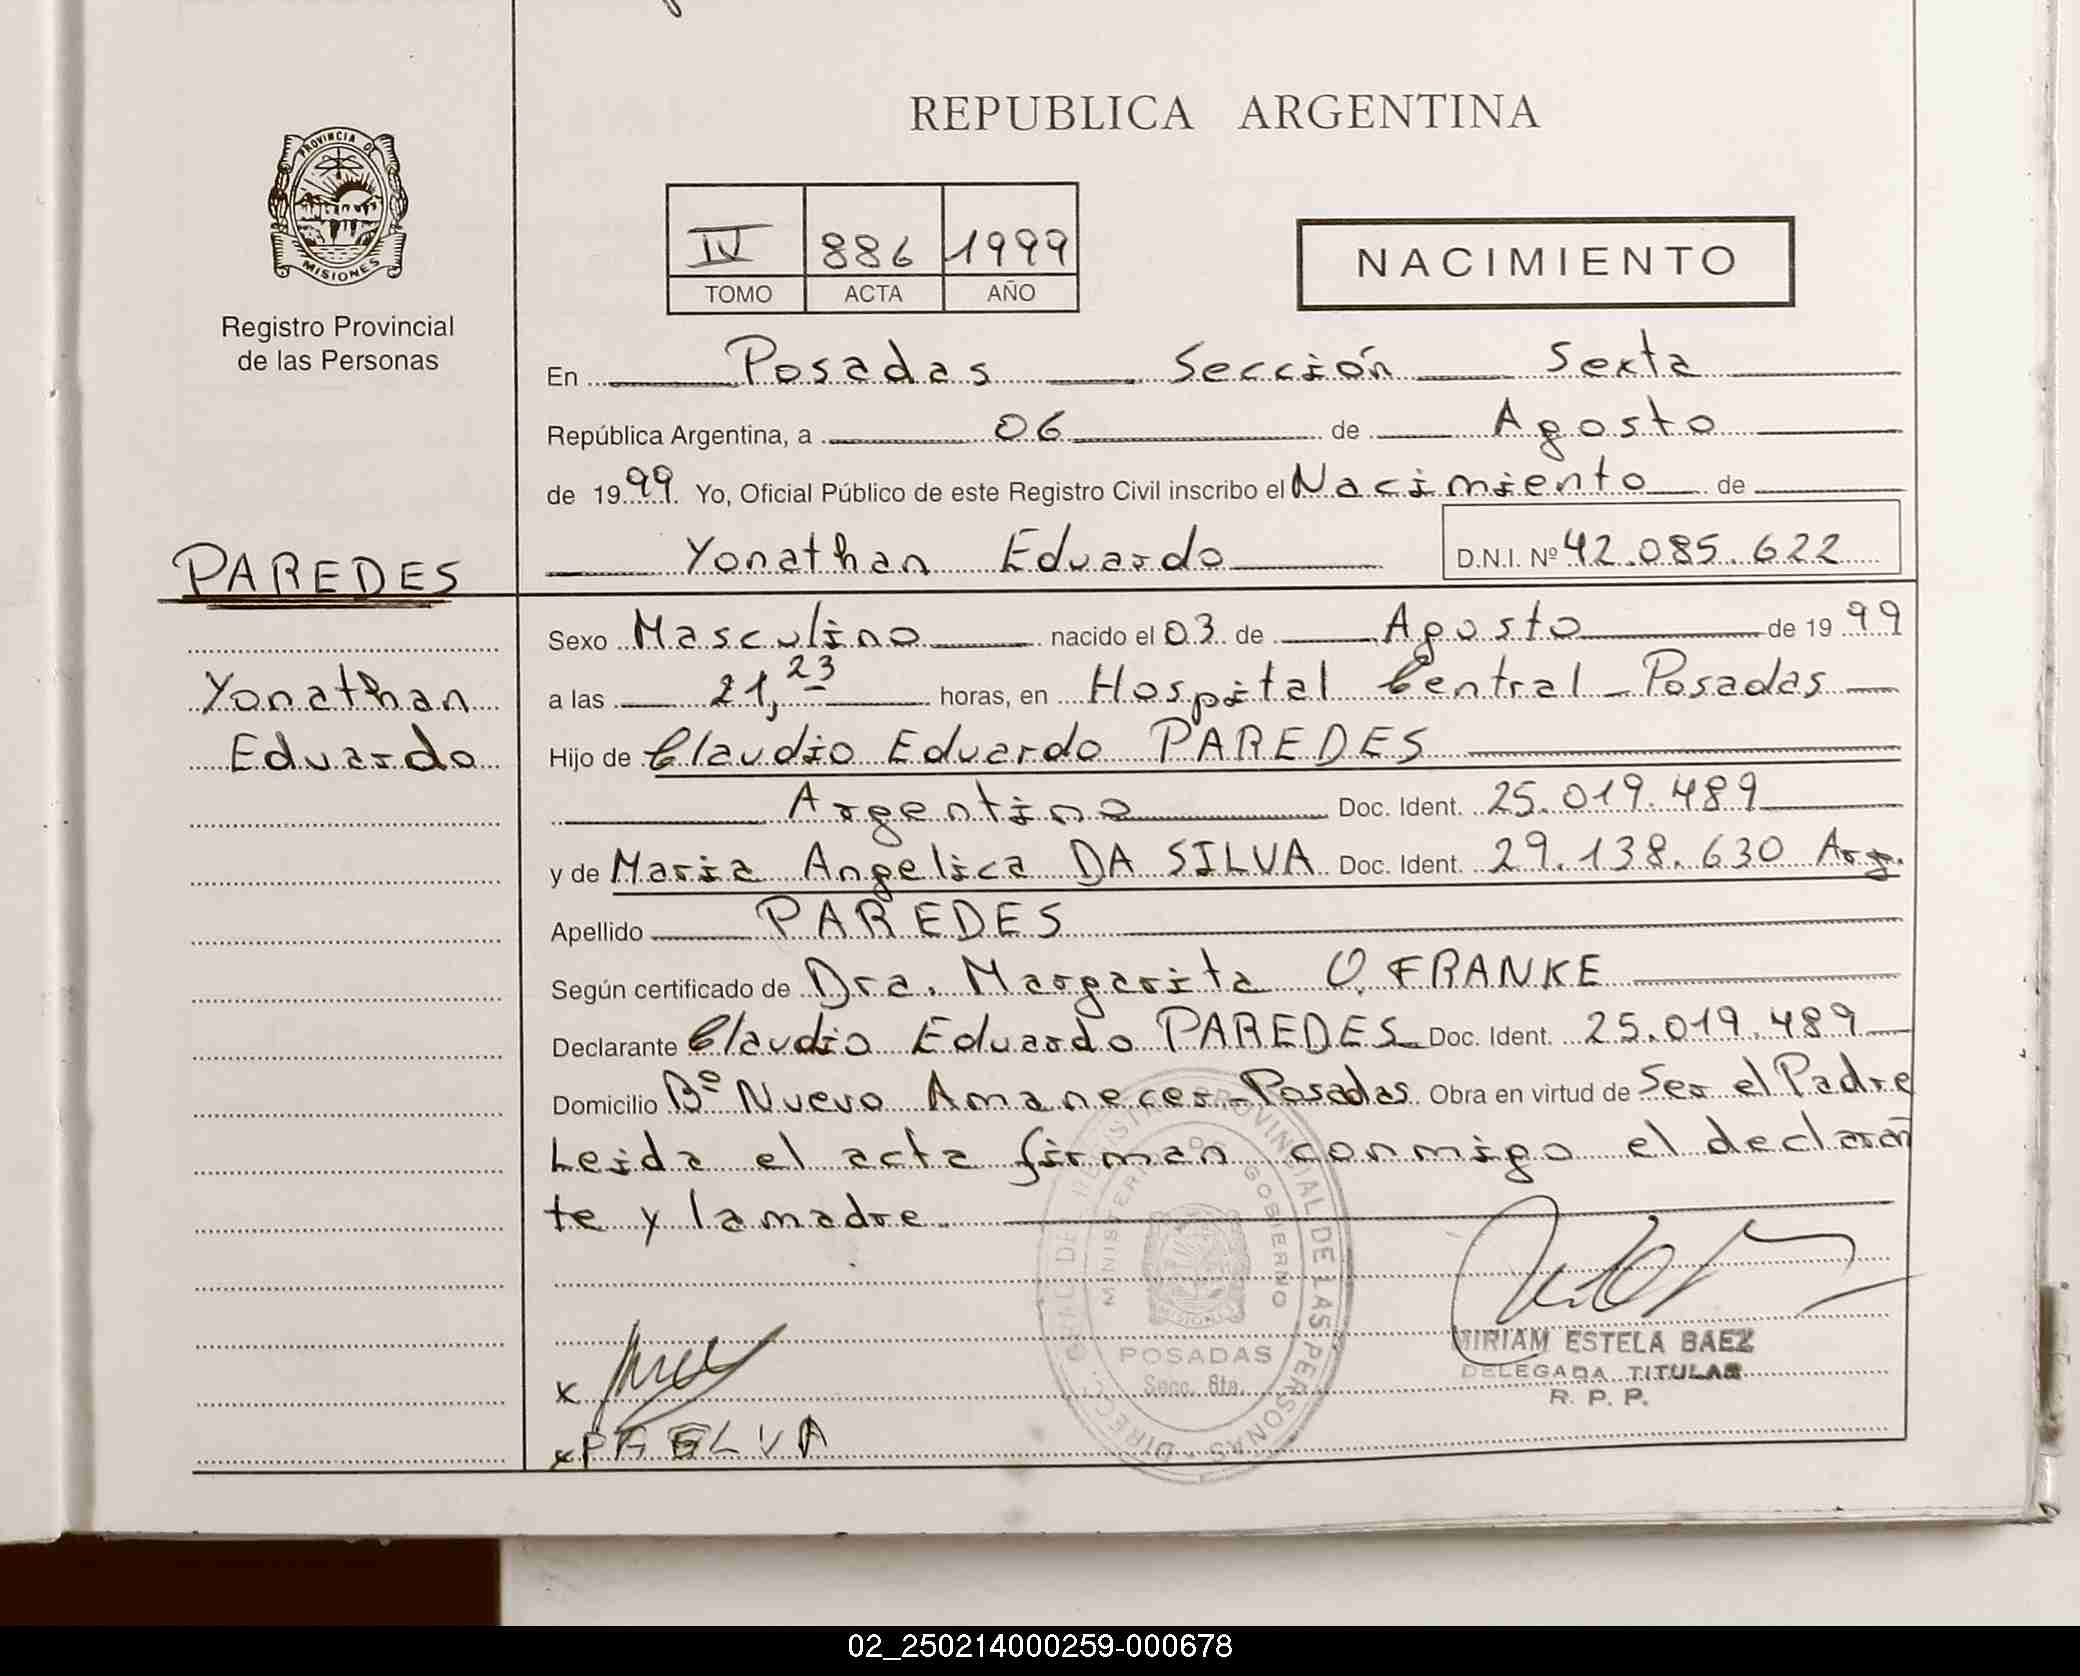 REPUBLICA ARGENTINA
PROVINCIA DE
MISIONES
Registro Provincial
de las Personas
IV 886 1999
TOMO ACTA AÑO
NACIMIENTO
En Posadas Sección Sexta
República Argentina, a 06 de Agosto
de 1999 Yo, Oficial Público de este Registro Civil inscribo el Nacimiento de
Yonathan Eduardo D.N.I. Nº 42.085.622
PAREDES
Yonathan
Eduardo
Sexo Masculino nacido el 03 de Agosto de 1999
a las 21,23 horas, en Hospital Central - Posadas
Hijo de Claudio Eduardo PAREDES
Argentino Doc. Ident. 25.019.489
y de Maria Angelica DA SILVA Doc. Ident. 29.138.630 Arg.
Apellido PAREDES
Según certificado de Dra. Margarita O. FRANKE
Declarante Claudio Eduardo PAREDES Doc. Ident. 25.019.489
Domicilio Bº Nuevo Amanecer - Posadas Obra en virtud de Ser el Padre
Leida el acta firman conmigo el declaran
te y la madre
DIRECC. GRAL. DEL REGISTRO PROVINCIAL DE LAS PERSONAS
MINISTERIO DE GOBIERNO
POSADAS
Secc. 6ta.
MIRIAM ESTELA BAEZ
DELEGADA TITULAR
R. P. P.
x
x
02_250214000259-000678